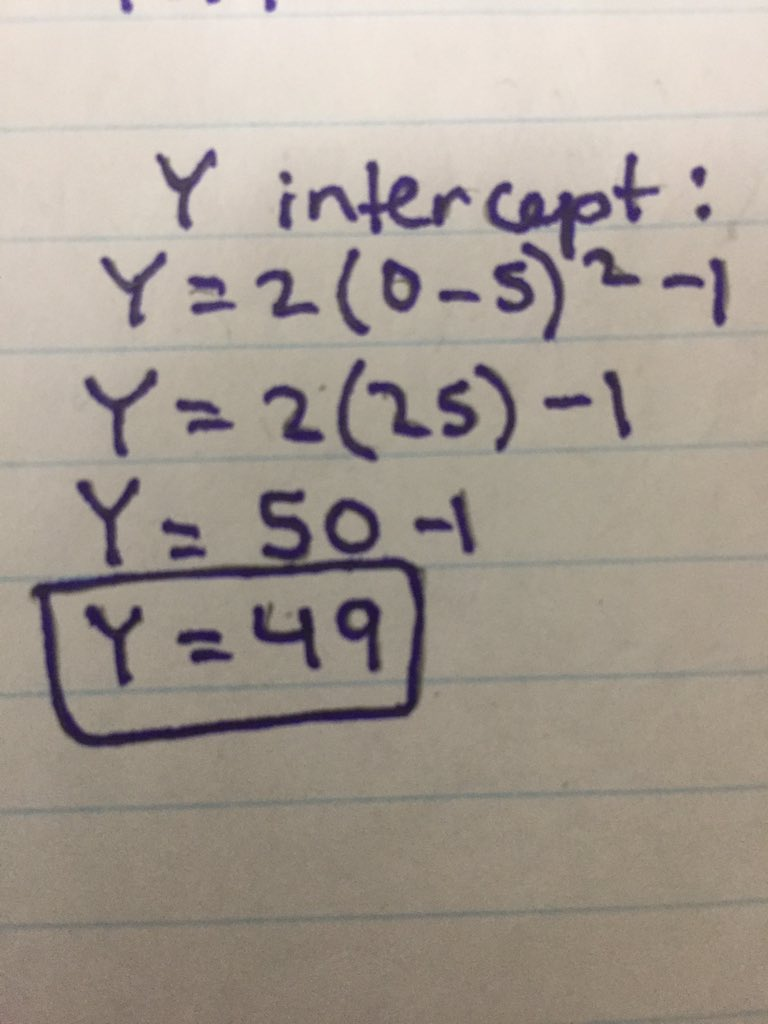 Y intercept:
Y = 2(0-5)² -1
Y = 2(25) -1
Y = 50 -1
Y = 49